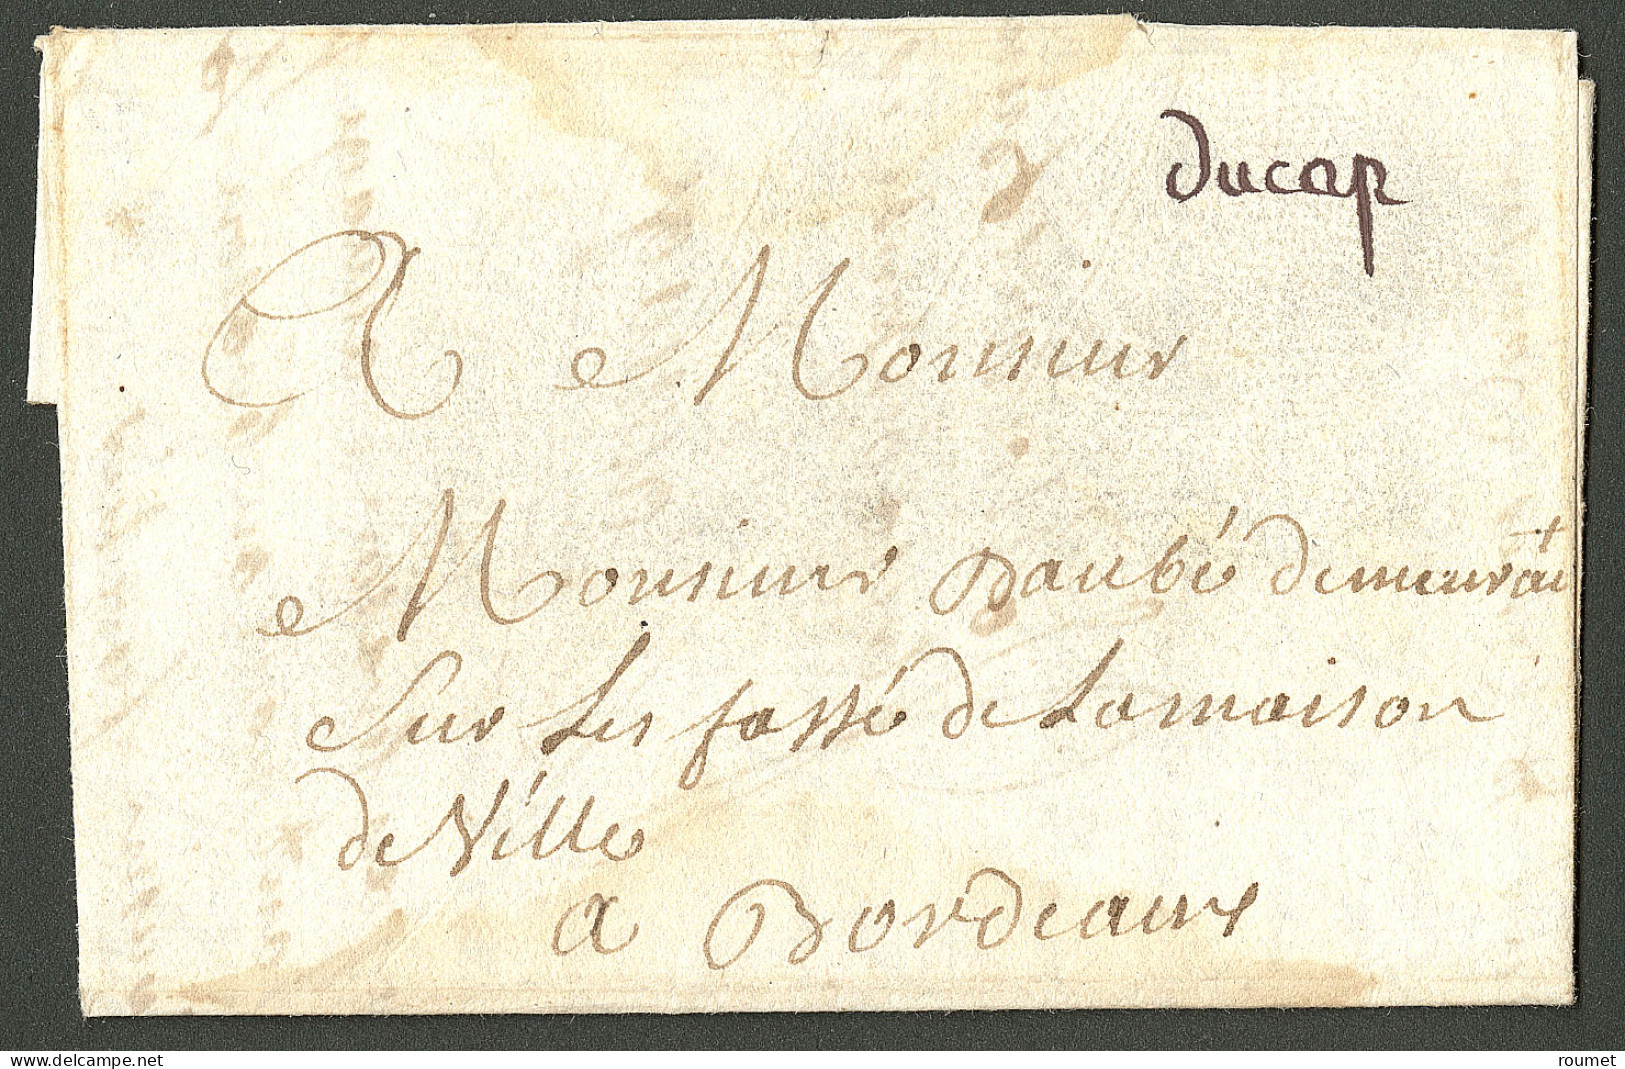 ducap
A Monsieur
Monsieur Daubé demeurant
Sur Les fossé de Lamaison
de Ville
a Bordeaux
delcampe.net
roumet